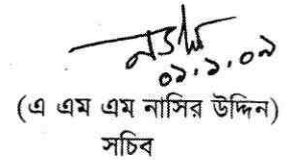 ০১.১.০৯
(এ এম এম নাসির উদ্দিন)
সচিব